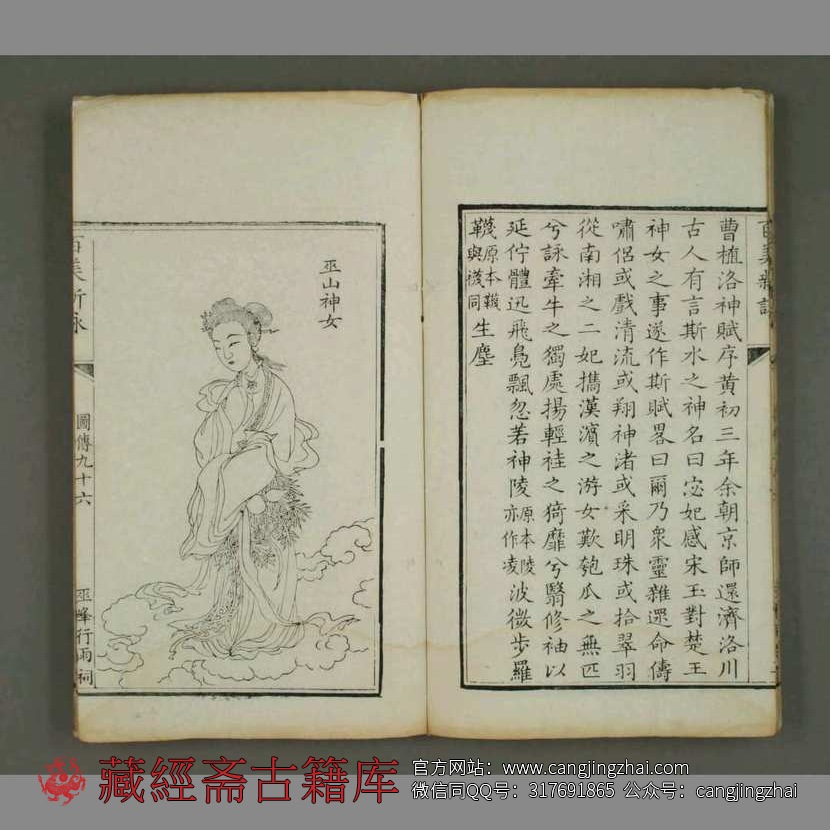 百美新詠
曹植洛神賦序黃初三年余朝京師還濟洛川
古人有言斯水之神名曰宓妃感宋玉對楚王
神女之事遂作斯賦畧曰爾乃衆靈雜遝命儔
嘯侶或戲清流或翔神渚或采明珠或拾翠羽
從南湘之二妃攜漢濱之游女歎匏瓜之無匹
兮詠牽牛之獨處揚輕袿之猗靡兮翳修袖以
延佇體迅飛鳧飄忽若神陵原本陵亦作凌波微步羅
襪原本韈韈與襪同生塵
巫山神女
百美新詠
圖傳九十六
巫峰行雨祠
藏經斋古籍库
官方网站：www.cangjingzhai.com
微信同QQ号：317691865 公众号：cangjingzhai